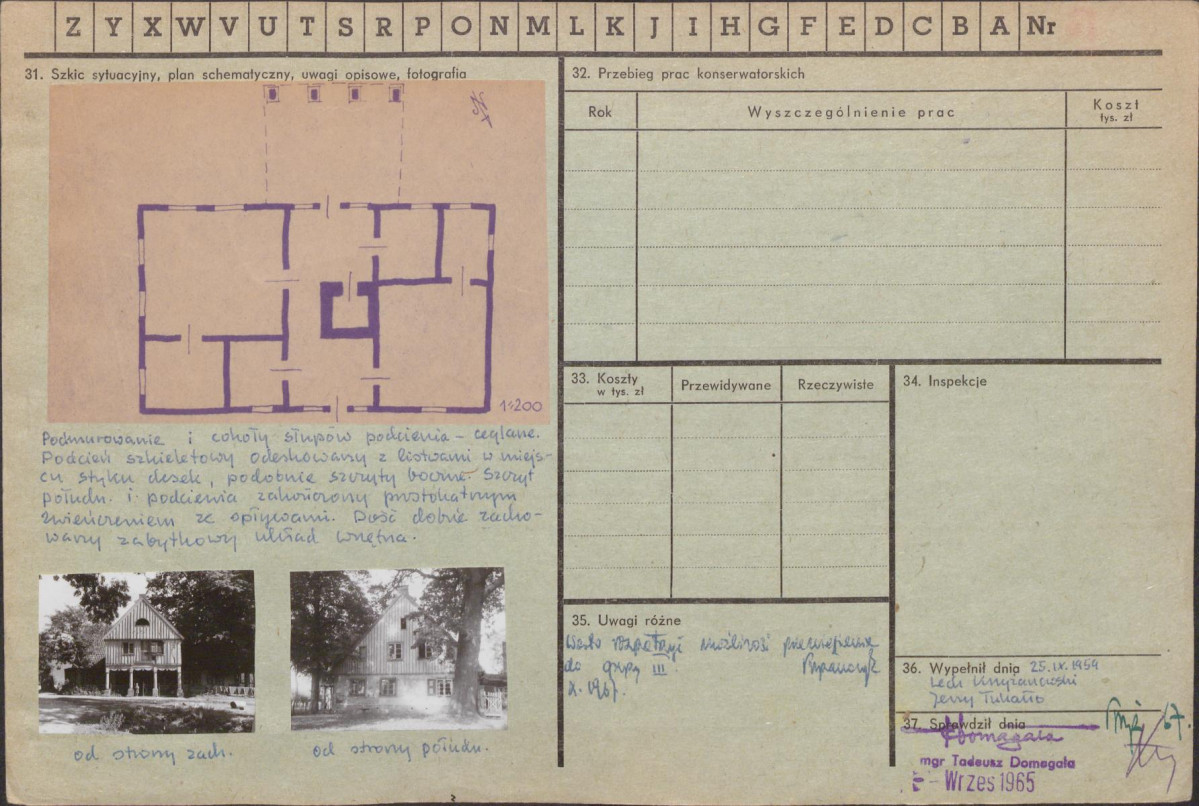 Z Y X W V U T S R P O N M L K J I H G F E D C B A Nr
31. Szkic sytuacyjny, plan schematyczny, uwagi opisowe, fotografia
1:200
Podmurowanie i cokoły słupów podcienia – ceglane.
Podcień szkieletowy odeskowany z listwami w miejs-
cu styku desek, podobnie szczyty boczne. Szczyt
połudn. i podcienia zakończony prostokątnym
zwieńczeniem ze spływami. Dość dobrze zacho-
wany zabytkowy układ wnętrza.
od strony zach.
od strony połudn.
32. Przebieg prac konserwatorskich
Rok
Wyszczególnienie prac
Koszt
tys. zł
33. Koszty
w tys. zł
Przewidywane
Rzeczywiste
34. Inspekcje
35. Uwagi różne
Warto możliwość
do grupy III.
X. 1967.
36. Wypełnił dnia 25.IX.1959
Lech Krzyżanowski
Jerzy
37. Sprawdził dnia
67.
Domagała
mgr Tadeusz Domagała
- Wrzes 1965